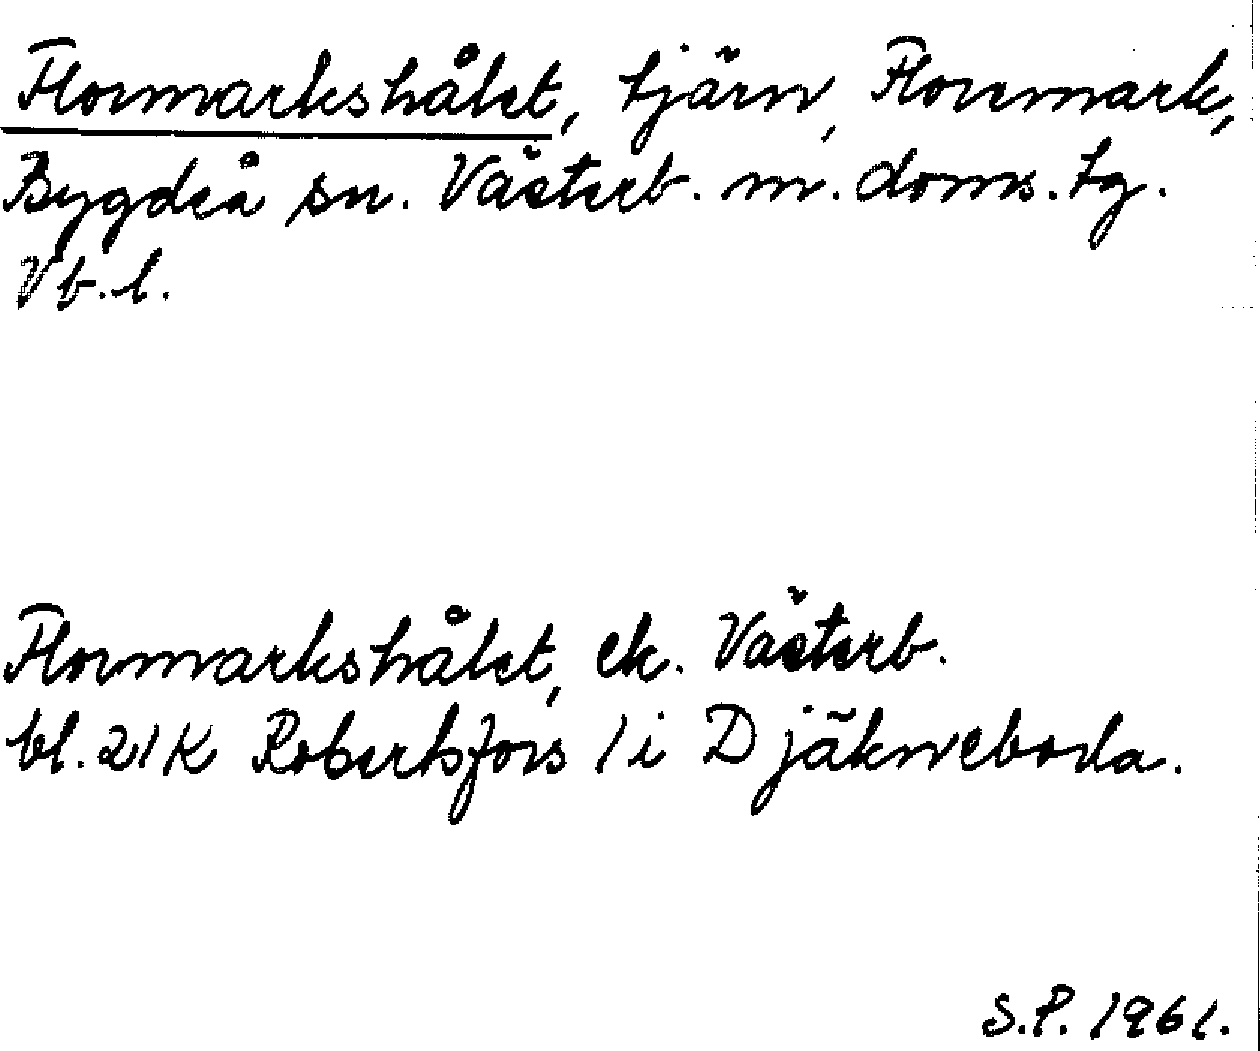 Flormarkshålet, tjärn, Floremark,
Bygdeå sn. Västerb. m. doms. tg.
Vb. l.
Flormarkshålet, ek. Västerb.
bl. 21K Robertsfors 1 i Djäkneboda.
S.P. 1961.